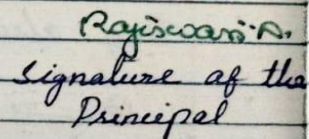 Rajiswari.A.
Signature of the
Principal